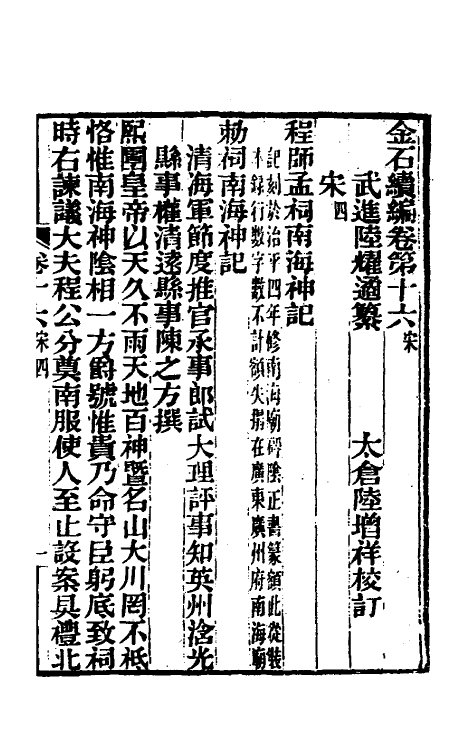 金石續編卷第十六宋
武進陸耀遹纂　太倉陸增祥校訂
宋四
程師孟祠南海神記
記刻於治平四年修南海廟碑陰正書篆額此從裝
本錄行數字數不計額失搨在廣東廣州府南海廟
勅祠南海神記
清海軍節度推官承事郎試大理評事知英州浛光
縣事權清遠縣事陳之方撰
熙寧皇帝以天久不雨天地百神暨名山大川罔不祇
恪惟南海神陰相一方爵號惟貴乃命守臣躬底致祠
時右諫議大夫程公分奠南服使人至止設案具禮北
卷十六宋四
一